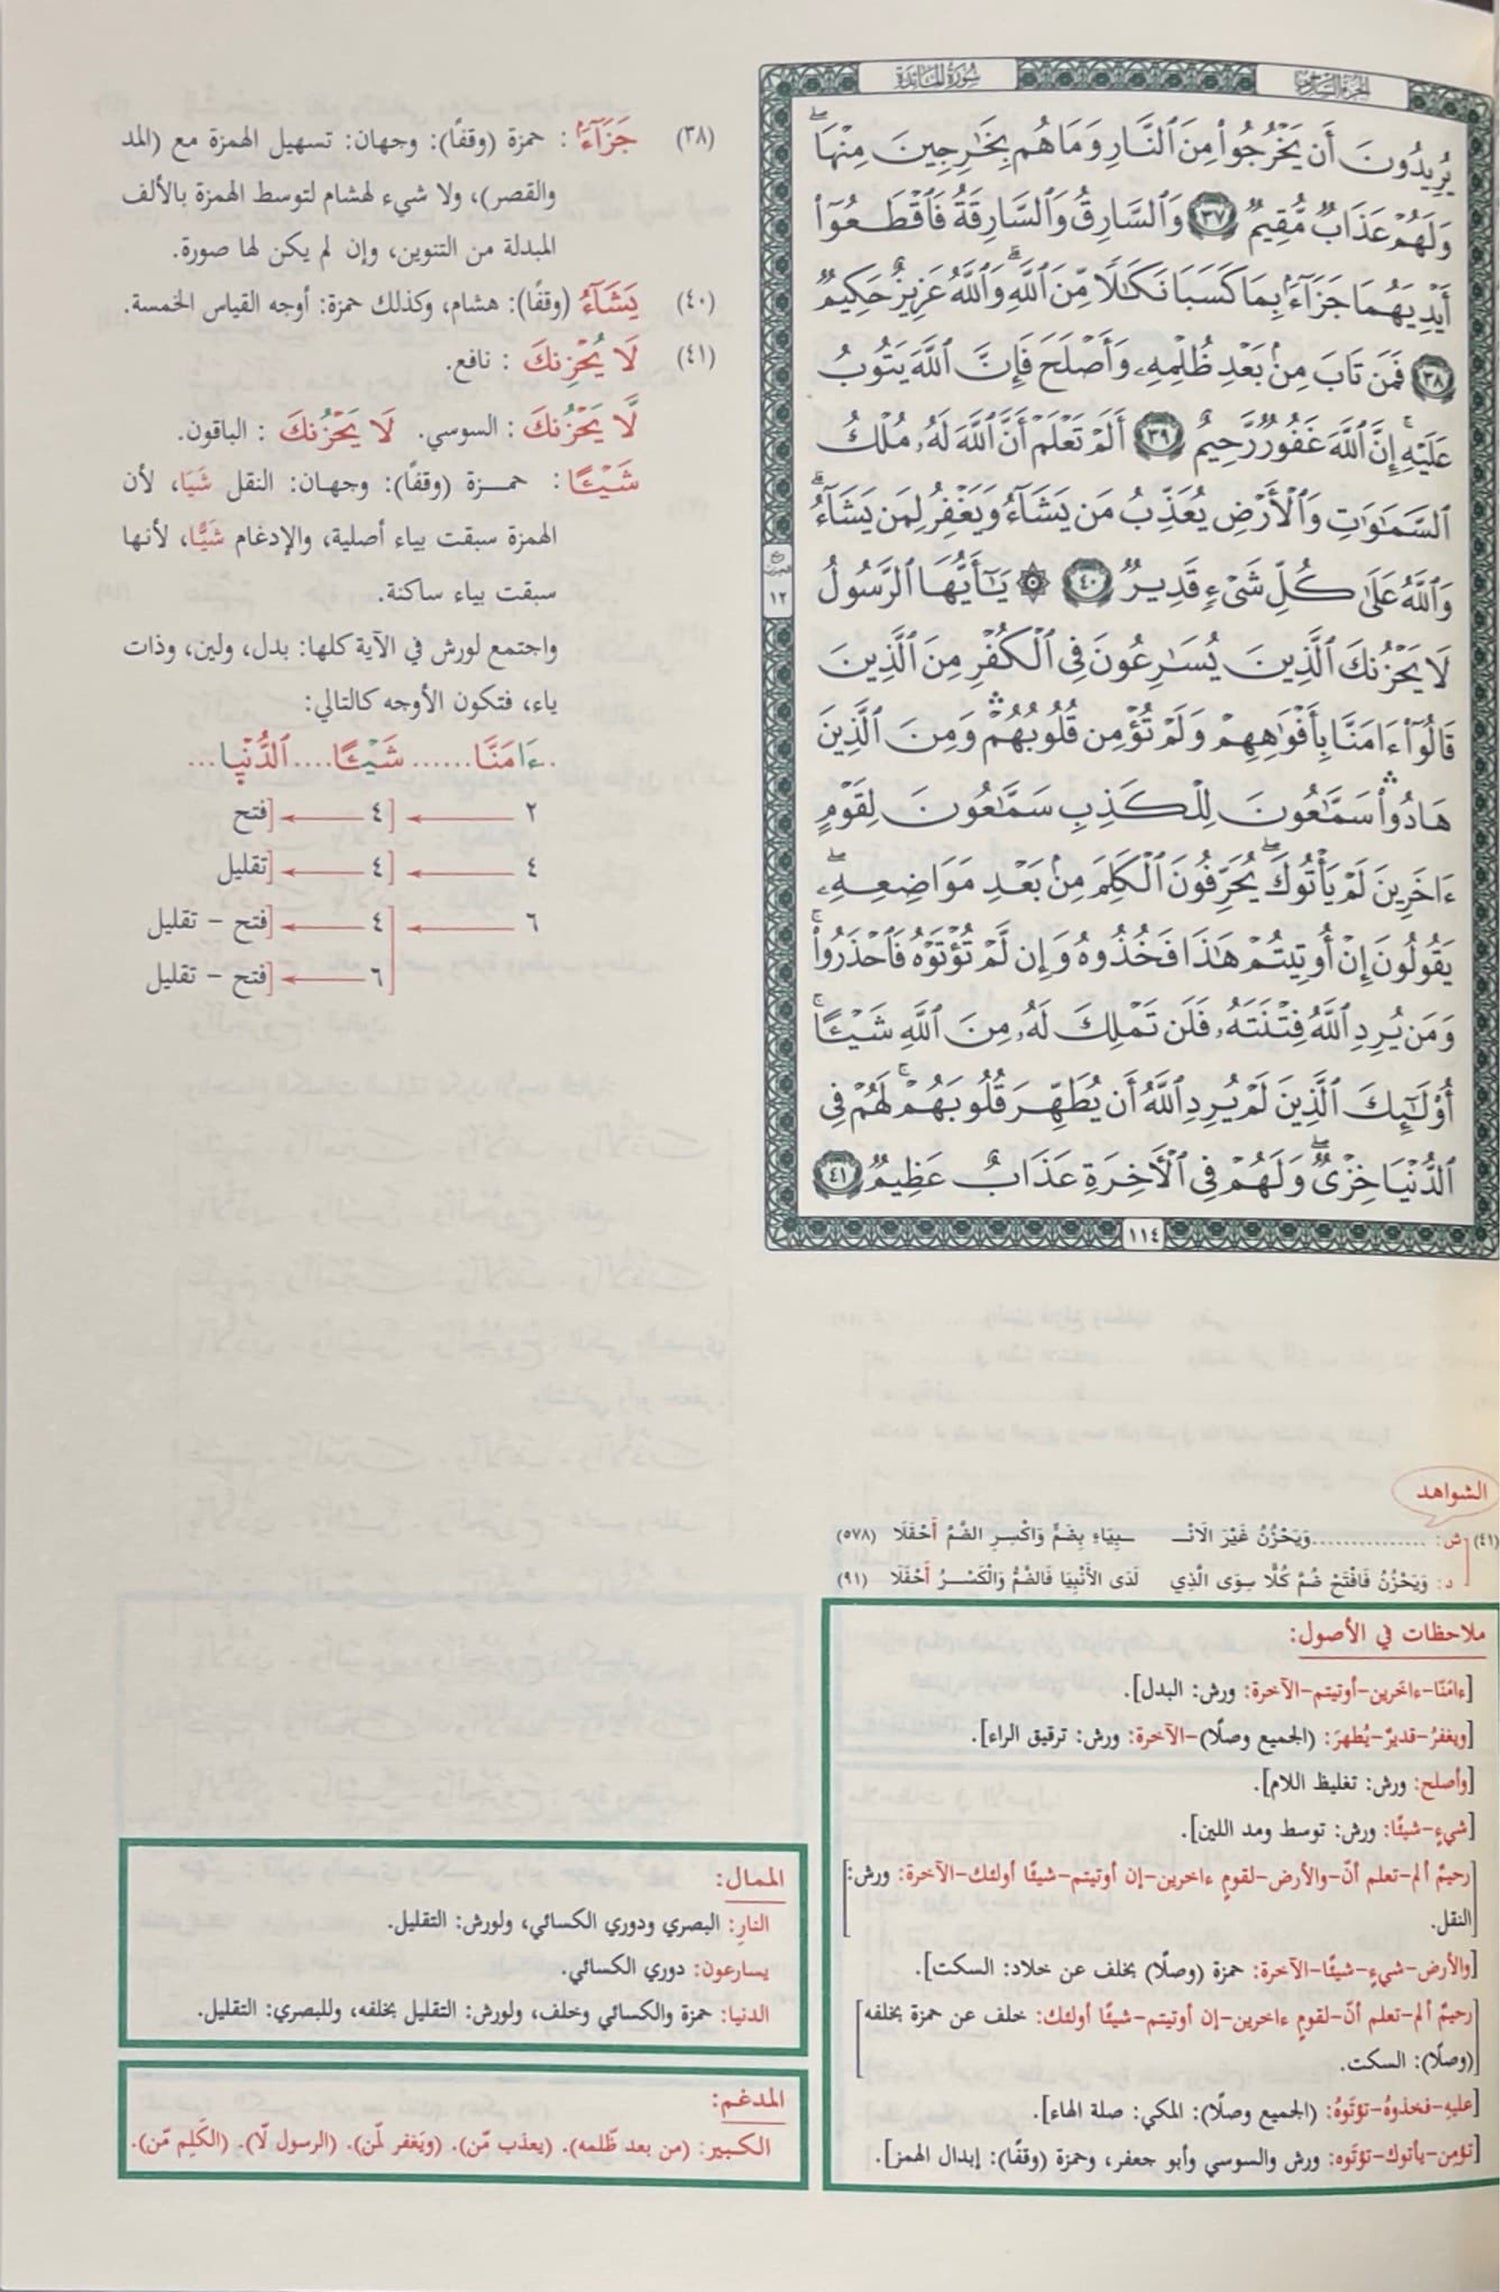 الجزء السادس
سورة المائدة
يُرِيدُونَ أَن يَخْرُجُوا۟ مِنَ ٱلنَّارِ وَمَا هُم بِخَٰرِجِينَ مِنْهَا ۖ
وَلَهُمْ عَذَابٌ مُّقِيمٌ ٣٧ وَٱلسَّارِقُ وَٱلسَّارِقَةُ فَٱقْطَعُوٓا۟
أَيْدِيَهُمَا جَزَآءًۢ بِمَا كَسَبَا نَكَٰلًا مِّنَ ٱللَّهِ ۗ وَٱللَّهُ عَزِيزٌ حَكِيمٌ
٣٨ فَمَن تَابَ مِنۢ بَعْدِ ظُلْمِهِۦ وَأَصْلَحَ فَإِنَّ ٱللَّهَ يَتُوبُ
عَلَيْهِ ۗ إِنَّ ٱللَّهَ غَفُورٌ رَّحِيمٌ ٣٩ أَلَمْ تَعْلَمْ أَنَّ ٱللَّهَ لَهُۥ مُلْكُ
ٱلسَّمَٰوَٰتِ وَٱلْأَرْضِ يُعَذِّبُ مَن يَشَآءُ وَيَغْفِرُ لِمَن يَشَآءُ ۗ
وَٱللَّهُ عَلَىٰ كُلِّ شَىْءٍ قَدِيرٌ ٤٠ ۞ يَٰٓأَيُّهَا ٱلرَّسُولُ
لَا يَحْزُنكَ ٱلَّذِينَ يُسَٰرِعُونَ فِى ٱلْكُفْرِ مِنَ ٱلَّذِينَ
قَالُوٓا۟ ءَامَنَّا بِأَفْوَٰهِهِمْ وَلَمْ تُؤْمِن قُلُوبُهُمْ ۛ وَمِنَ ٱلَّذِينَ
هَادُوا۟ ۛ سَمَّٰعُونَ لِلْكَذِبِ سَمَّٰعُونَ لِقَوْمٍ
ءَاخَرِينَ لَمْ يَأْتُوكَ ۖ يُحَرِّفُونَ ٱلْكَلِمَ مِنۢ بَعْدِ مَوَاضِعِهِۦ ۖ
يَقُولُونَ إِنْ أُوتِيتُمْ هَٰذَا فَخُذُوهُ وَإِن لَّمْ تُؤْتَوْهُ فَٱحْذَرُوا۟ ۚ
وَمَن يُرِدِ ٱللَّهُ فِتْنَتَهُۥ فَلَن تَمْلِكَ لَهُۥ مِنَ ٱللَّهِ شَيْـًٔا ۚ
أُو۟لَٰٓئِكَ ٱلَّذِينَ لَمْ يُرِدِ ٱللَّهُ أَن يُطَهِّرَ قُلُوبَهُمْ ۚ لَهُمْ فِى
ٱلدُّنْيَا خِزْىٌ ۖ وَلَهُمْ فِى ٱلْءَاخِرَةِ عَذَابٌ عَظِيمٌ ٤١
١١٤
ربع الحزب ١٢
(٣٨) جَزَآءًۢ : حمزة (وقفًا): وجهان: تسهيل الهمزة مع (المد
والقصر)، ولا شيء لهشام لتوسط الهمزة بالألف
المبدلة من التنوين، وإن لم يكن لها صورة.
(٤٠) يَشَآءُ (وقفًا): هشام، وكذلك حمزة: أوجه القياس الخمسة.
(٤١) لَا يُحْزِنكَ : نافع.
لَّا يَحْزُنكَ : السوسي. لَا يَحْزُنكَ : الباقون.
شَيْـًٔا : حمزة (وقفًا): وجهان: النقل شَيَا، لأن
الهمزة سبقت بياء أصلية، والإدغام شَيًّا، لأنها
سبقت بياء ساكنة.
واجتمع لورش في الآية كلها: بدل، ولين، وذات
ياء، فتكون الأوجه كالتالي:
.ءَامَنَّا......شَيْـًٔا....ٱلدُّنْيِا...
٢ ← [٤ ← [فتح
٤ ← [٤ ← [تقليل
٦ ← [٤ ← [فتح - تقليل
٦ ← [فتح - تقليل
الشواهد
(٤١) ش: ...............وَيَحْزُنُ غَيْرَ الَانْـ ـبِيَاءِ بِضَمٍّ وَاكْسِرِ الضَّمَّ أَحْفَلَا (٥٧٨)
د: وَيَحْزُنُ فَافْتَحْ ضُمَّ كُلًّا سِوَى الَّذِي لَدَى الأَنْبِيَا فَالضَّمُّ وَالْكَسْرُ أَحْفَلَا (٩١)
ملاحظات في الأصول:
[ءامَنّا-ءاخَرين-أوتيتم-الآخرة: ورش: البدل].
[ويغفرُ-قديرٌ-يُطهرَ: (الجميع وصلًا)-الآخرة: ورش: ترقيق الراء].
[وأصلح: ورش: تغليظ اللام].
[شيءٍ-شيئًا: ورش: توسط ومد اللين].
[رحيمٌ ألم-تعلم أنّ-والأرض-لقومٍ ءاخرين-إن أوتيتم-شيئًا أولئك-الآخرة: ورش:
النقل.]
[والأرض-شيءٍ-شيئًا-الآخرة: حمزة (وصلًا) بخلف عن خلاد: السكت].
[رحيمٌ ألم-تعلم أنّ-لقومٍ ءاخرين-إن أوتيتم-شيئًا أولئك: خلف عن حمزة بخلفه
(وصلًا): السكت.]
[عليهِ-فخذوهُ-تؤتَوهُ: (الجميع وصلًا): المكي: صلة الهاء].
[تؤمِن-يأتوك-تؤتَوه: ورش والسوسي وأبو جعفر، وحمزة (وقفًا): إبدال الهمز].
الممال:
النارِ: البصري ودوري الكسائي، ولورش: التقليل.
يسارعون: دوري الكسائي.
الدنيا: حمزة والكسائي وخلف، ولورش: التقليل بخلفه، وللبصري: التقليل.
المدغم:
الكبير: (من بعد ظّلمه). (يعذب مّن). (ويَغفر لّمن). (الرسول لّا). (الكَلِم مّن).